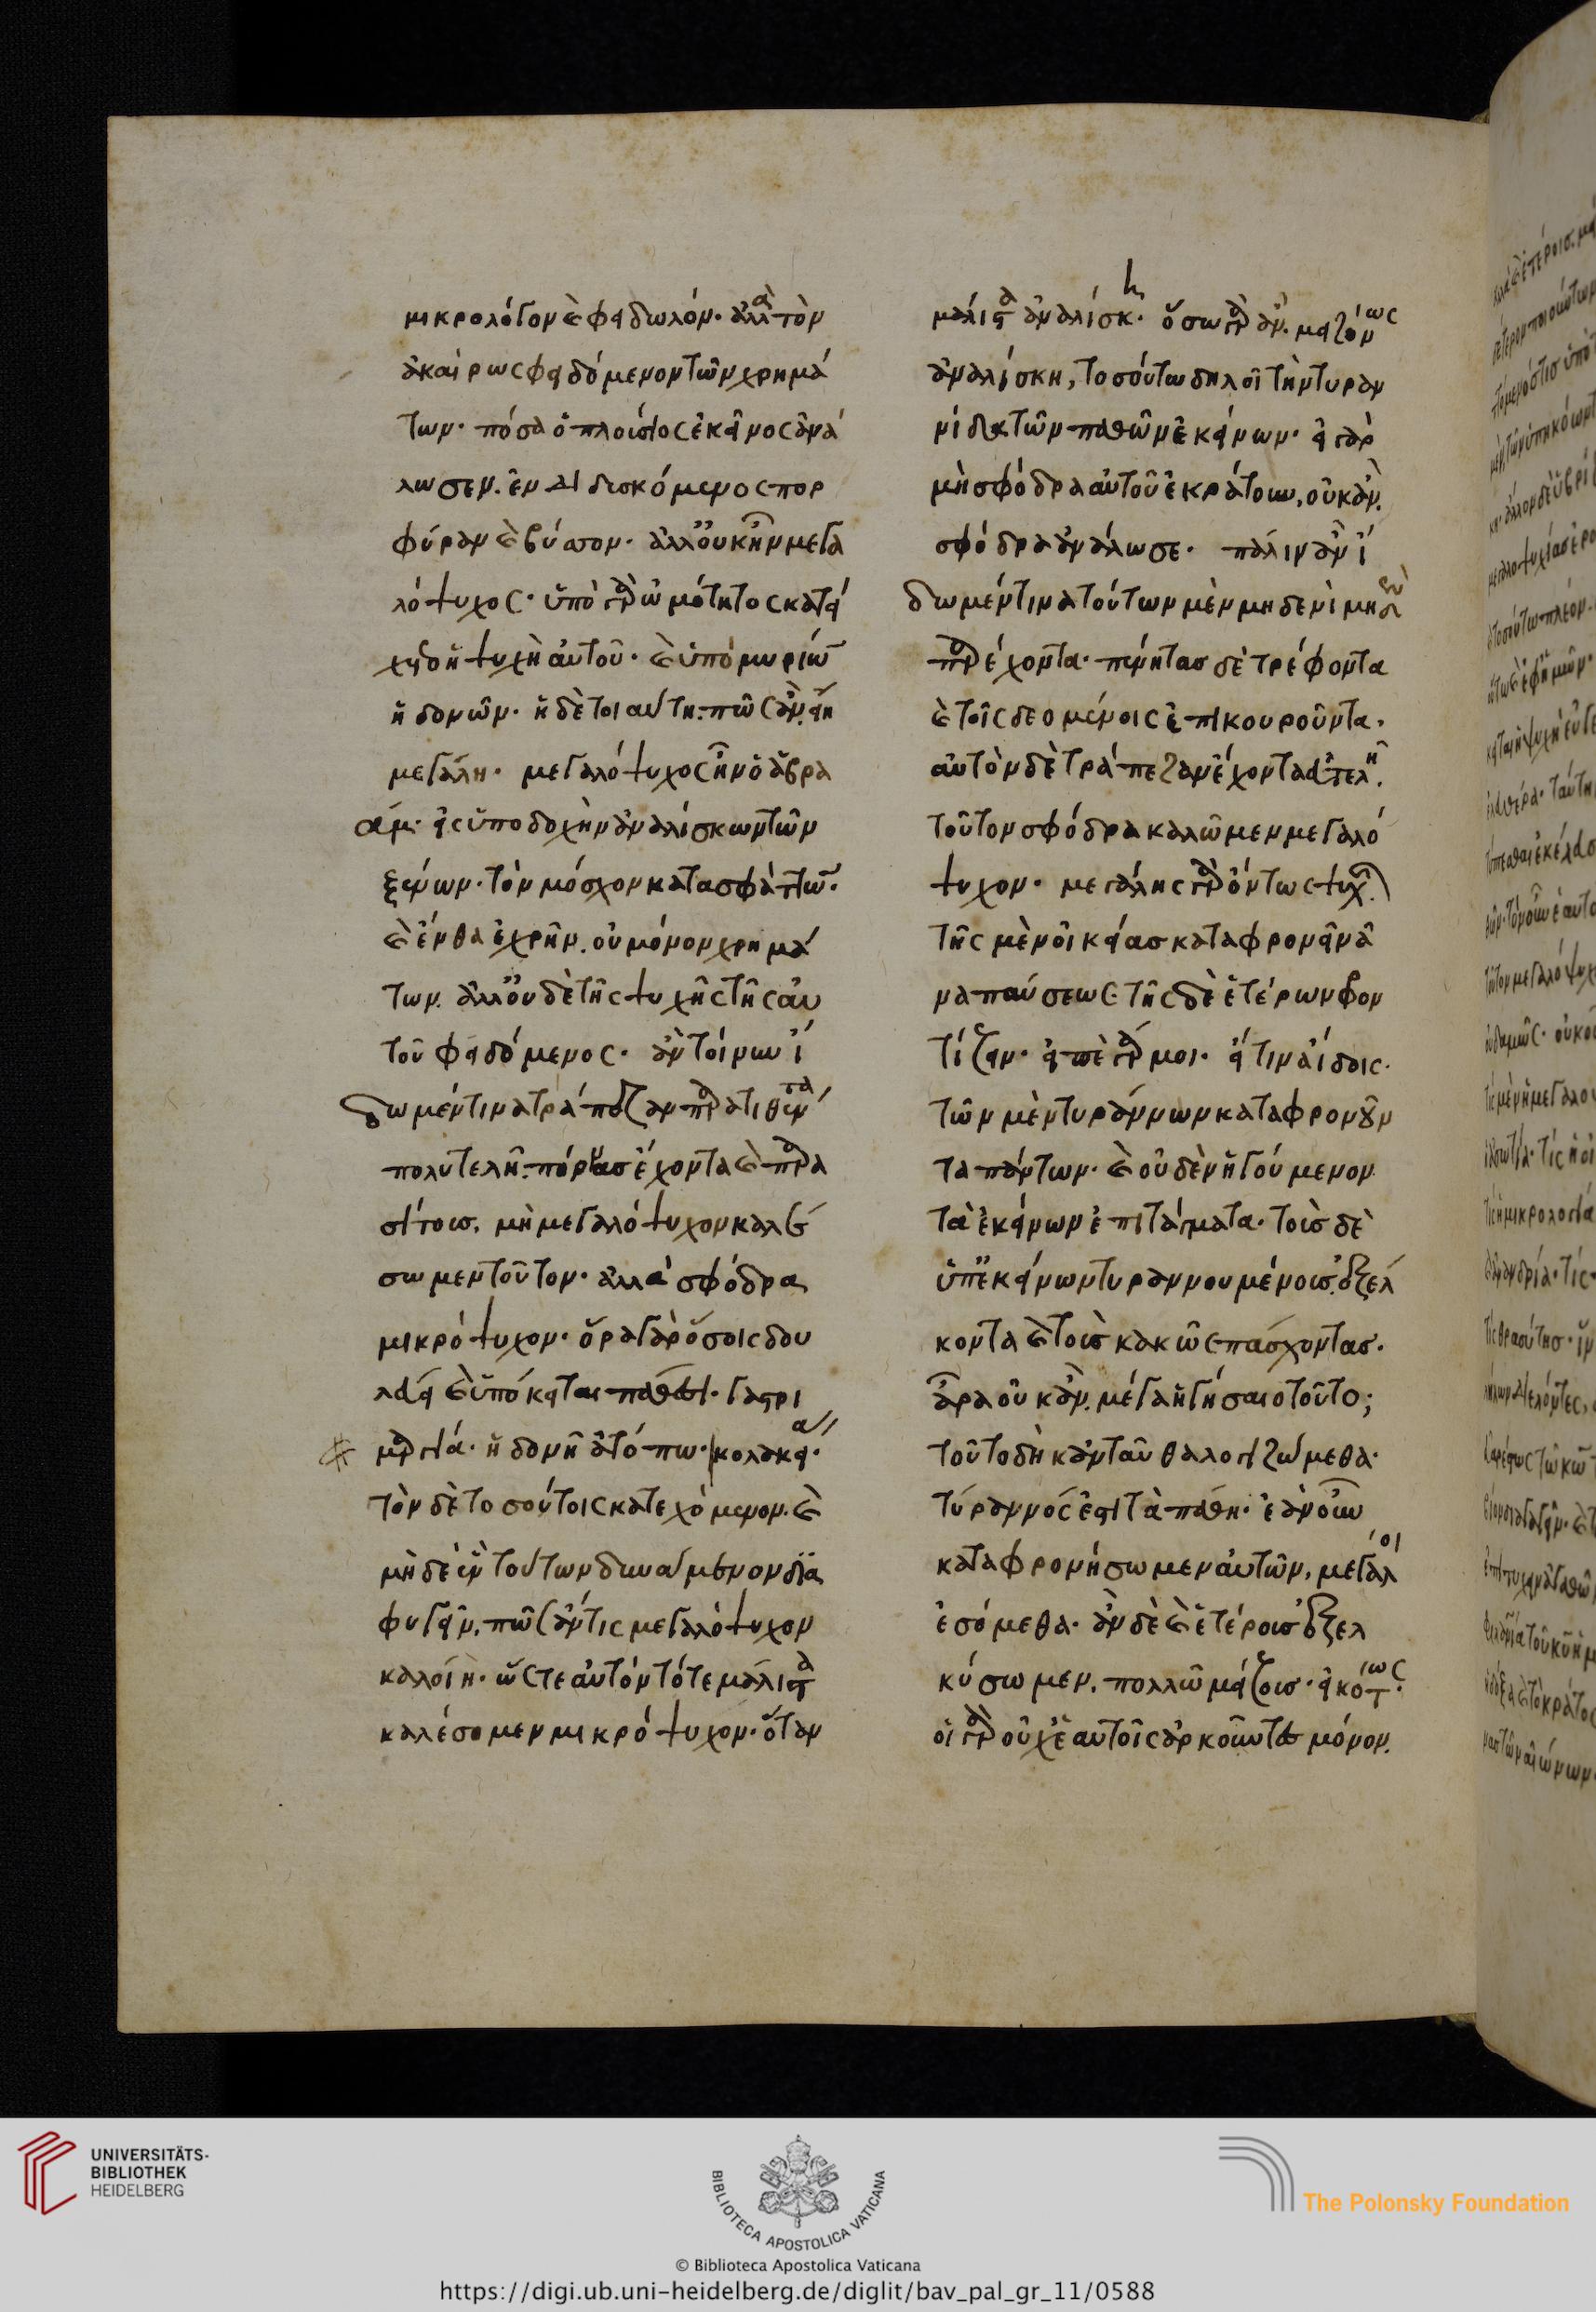 μικρολόγον καὶ φειδωλόν· ἀλλὰ τὸν
ἀκαίρως φειδόμενον τῶν χρημά
των· πόσα ὁ πλούσιος ἐκεῖνος ἀνά
λωσεν. ἐνδιδυσκόμενος πορ
φύραν καὶ βύσσον· ἀλλ' οὐκ ἦν μεγα
λόψυχος· ὑπὸ γὰρ ὠμότητος κατεί
χετο ἡ ψυχὴ αὐτοῦ· καὶ ὑπὸ μυρίων
ἡδονῶν· ἡ δὲ τοιαύτη· πῶς ἂν εἴη
μεγάλη· μεγαλόψυχος ἦν ὁ ἀβρα
άμ· εἰς ὑποδοχὴν ἀναλίσκων τῶν
ξένων· τὸν μόσχον κατασφάττων·
καὶ ἔνθα ἐχρῆν. οὐ μόνον χρημά
των. ἀλλ' οὐδὲ τῆς ψυχῆς τῆς αὑ
τοῦ φειδόμενος· ἂν τοίνυν ἴ
δωμέν τινα τράπεζαν παρατιθέντα
πολυτελῆ· πόρνας ἔχοντα καὶ παρα
σίτους. μὴ μεγαλόψυχον καλέ
σωμεν τοῦτον· ἀλλὰ σφόδρα
μικρόψυχον· ὅρα γὰρ ὅσοις δου
λεύει καὶ ὑπόκειται πάθεσι· γαστρι
μαργία· ἡδονῆ ἀτόπω· κολακεία·
τὸν δὲ τοσούτοις κατεχόμενον. καὶ
μηδὲ ἓν τούτων δυνάμενον δια
φυγεῖν. πῶς ἄν τις μεγαλόψυχον
καλοίη· ὥστε αὐτὸν τότε μάλιστα
καλέσομεν μικρόψυχον· ὅταν
μάλιστα ἀναλίσκη· ὅσω γὰρ ἂν. μειζόνως
ἀναλίσκη, τοσούτω δηλοῖ τὴν τυραν
νίδα τῶν παθῶν ἐκείνων· εἰ γὰρ
μὴ σφόδρα αὐτοῦ ἐκράτουν, οὐκ ἂν.
σφόδρα ἀνάλωσε· πάλιν ἂν ἴ
δωμέν τινα τούτων μὲν μηδενὶ μηδὲν
παρέχοντα· πένητας δὲ τρέφοντα
καὶ τοῖς δεομένοις ἐπικουροῦντα·
αὐτὸν δὲ τράπεζαν ἔχοντα εὐτελῆ.
τοῦτον σφόδρα καλῶμεν μεγαλό
ψυχον· μεγάλης γὰρ ὄντως ψυχῆς.
τῆς μὲν οἰκείας καταφρονεῖν ἀ
ναπαύσεως τῆς δὲ ἑτέρων φρον
τίζειν· εἰπὲ γάρ μοι· εἴ τινα ἴδοις·
τῶν μὲν τυράννων καταφρονοῦν
τα πάντων· καὶ οὐδὲν ἡγούμενον
τὰ ἐκείνων ἐπιτάγματα· τοῖς δὲ
ὑπ' ἐκείνων τυραννουμένους. ἐξέλ
κοντα καὶ τοὺς κακῶς πάσχοντας·
ἆρα οὐκ ἂν. μέγα ἡγήσαιο τοῦτο;
τοῦτο δὴ κἀνταῦθα λογιζώμεθα·
τύραννός ἐστι τὰ πάθη· ἐὰν οὖν
καταφρονήσωμεν αὐτῶν, μεγάλοι
ἐσόμεθα· ἂν δὲ καὶ ἑτέρους ἐξελ
κύσωμεν. πολλῶ μείζους· εἰκότως·
οἱ γὰρ οὐχ ἑαυτοῖς ἀρκοῦνται μόνον.
UNIVERSITÄTS-
BIBLIOTHEK
HEIDELBERG
BIBLIOTECA APOSTOLICA VATICANA
© Biblioteca Apostolica Vaticana
The Polonsky Foundation
https://digi.ub.uni-heidelberg.de/diglit/bav_pal_gr_11/0588